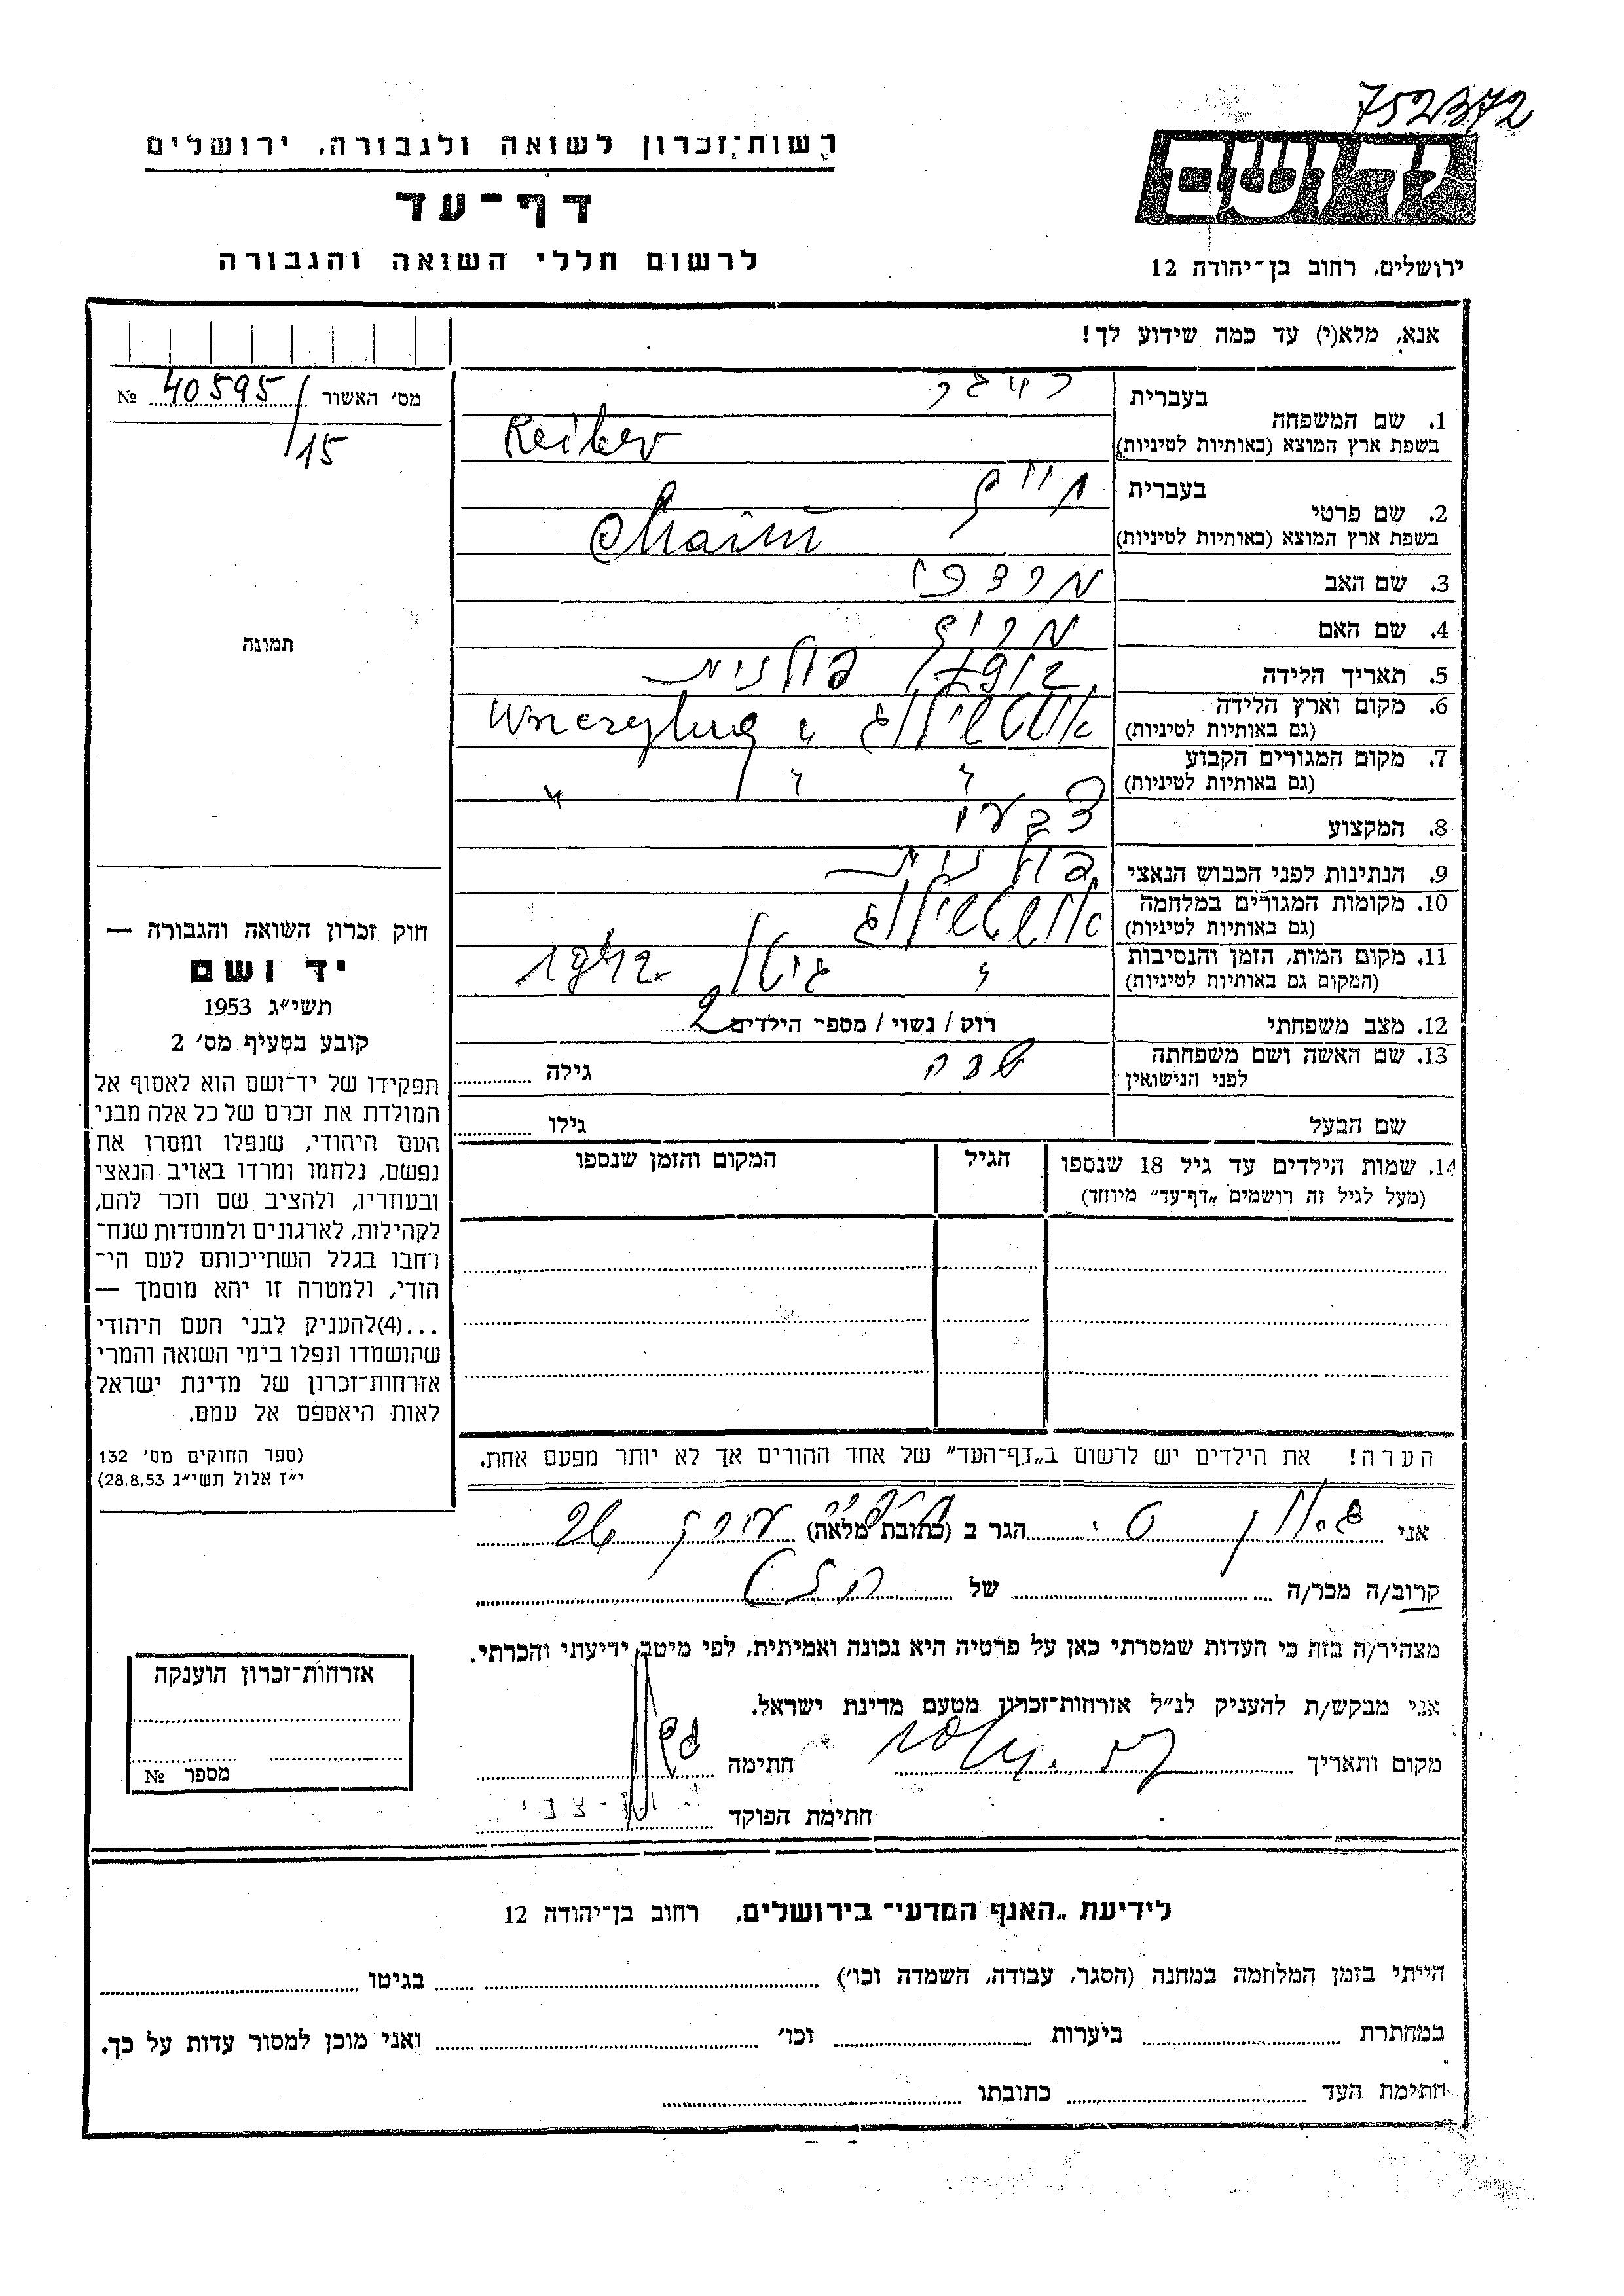 752372
יד ושם
רשות-זכרון לשואה ולגבורה, ירושלים
דף-עד
לרשום חללי השואה והגבורה
ירושלים, רחוב בן-יהודה 12
אנא, מלא(י) עד כמה שידוע לך!
מס׳ האשור № 40595/15
1. שם המשפחה
בעברית
בשפת ארץ המוצא (באותיות לטיניות)
2. שם פרטי
בעברית חיים
בשפת ארץ המוצא (באותיות לטיניות) Chaim
3. שם האב מרדכי
4. שם האם מרים
5. תאריך הלידה 1912 פולנית
6. מקום וארץ הלידה
(גם באותיות לטיניות)
7. מקום המגורים הקבוע
(גם באותיות לטיניות)
8. המקצוע
9. הנתינות לפני הכבוש הנאצי פולנית
10. מקומות המגורים במלחמה
(גם באותיות לטיניות)
11. מקום המות, הזמן והנסיבות גיטו 1942
(המקום גם באותיות לטיניות)
12. מצב משפחתי רוק / נשוי / מספר הילדים 2
13. שם האשה ושם משפחתה
לפני הנישואין
שרה גילה
שם הבעל גילו
14. שמות הילדים עד גיל 18 שנספו
(מעל לגיל זה רושמים „דף-עד״ מיוחד)
הגיל
המקום והזמן שנספו
הערה! את הילדים יש לרשום ב„דף-העד״ של אחד ההורים אך לא יותר מפעם אחת.
אני הגר ב (כתובת מלאה)
קרוב/ה מכר/ה של
מצהיר/ה בזה כי העדות שמסרתי כאן על פרטיה היא נכונה ואמיתית, לפי מיטב ידיעתי והכרתי.
אני מבקש/ת להעניק לנ״ל אזרחות-זכרון מטעם מדינת ישראל.
מקום ותאריך חתימה
חתימת הפוקד
תמונה
חוק זכרון השואה והגבורה —
יד ושם
תשי״ג 1953
קובע בסעיף מס׳ 2
תפקידו של יד-ושם הוא לאסוף אל
המולדת את זכרם של כל אלה מבני
העם היהודי, שנפלו ומסרו את
נפשם, נלחמו ומרדו באויב הנאצי
ובעוזריו, ולהציב שם וזכר להם,
לקהילות, לארגונים ולמוסדות שנח-
רחבו בגלל השתייכותם לעם הי-
הודי, ולמטרה זו יהא מוסמך —
...(4)להעניק לבני העם היהודי
שהושמדו ונפלו בימי השואה והמרי
אזרחות-זכרון של מדינת ישראל
לאות היאספם אל עמם.
(ספר החוקים מס׳ 132
י״ז אלול תשי״ג 28.8.53)
אזרחות-זכרון הוענקה
מספר №
לידיעת „האגף המדעי״ בירושלים. רחוב בן-יהודה 12
הייתי בזמן המלחמה במחנה (הסגר, עבודה, השמדה וכו׳) בגיטו
במחתרת ביערות וכו׳ ואני מוכן למסור עדות על כך.
חתימת העד כתובתו